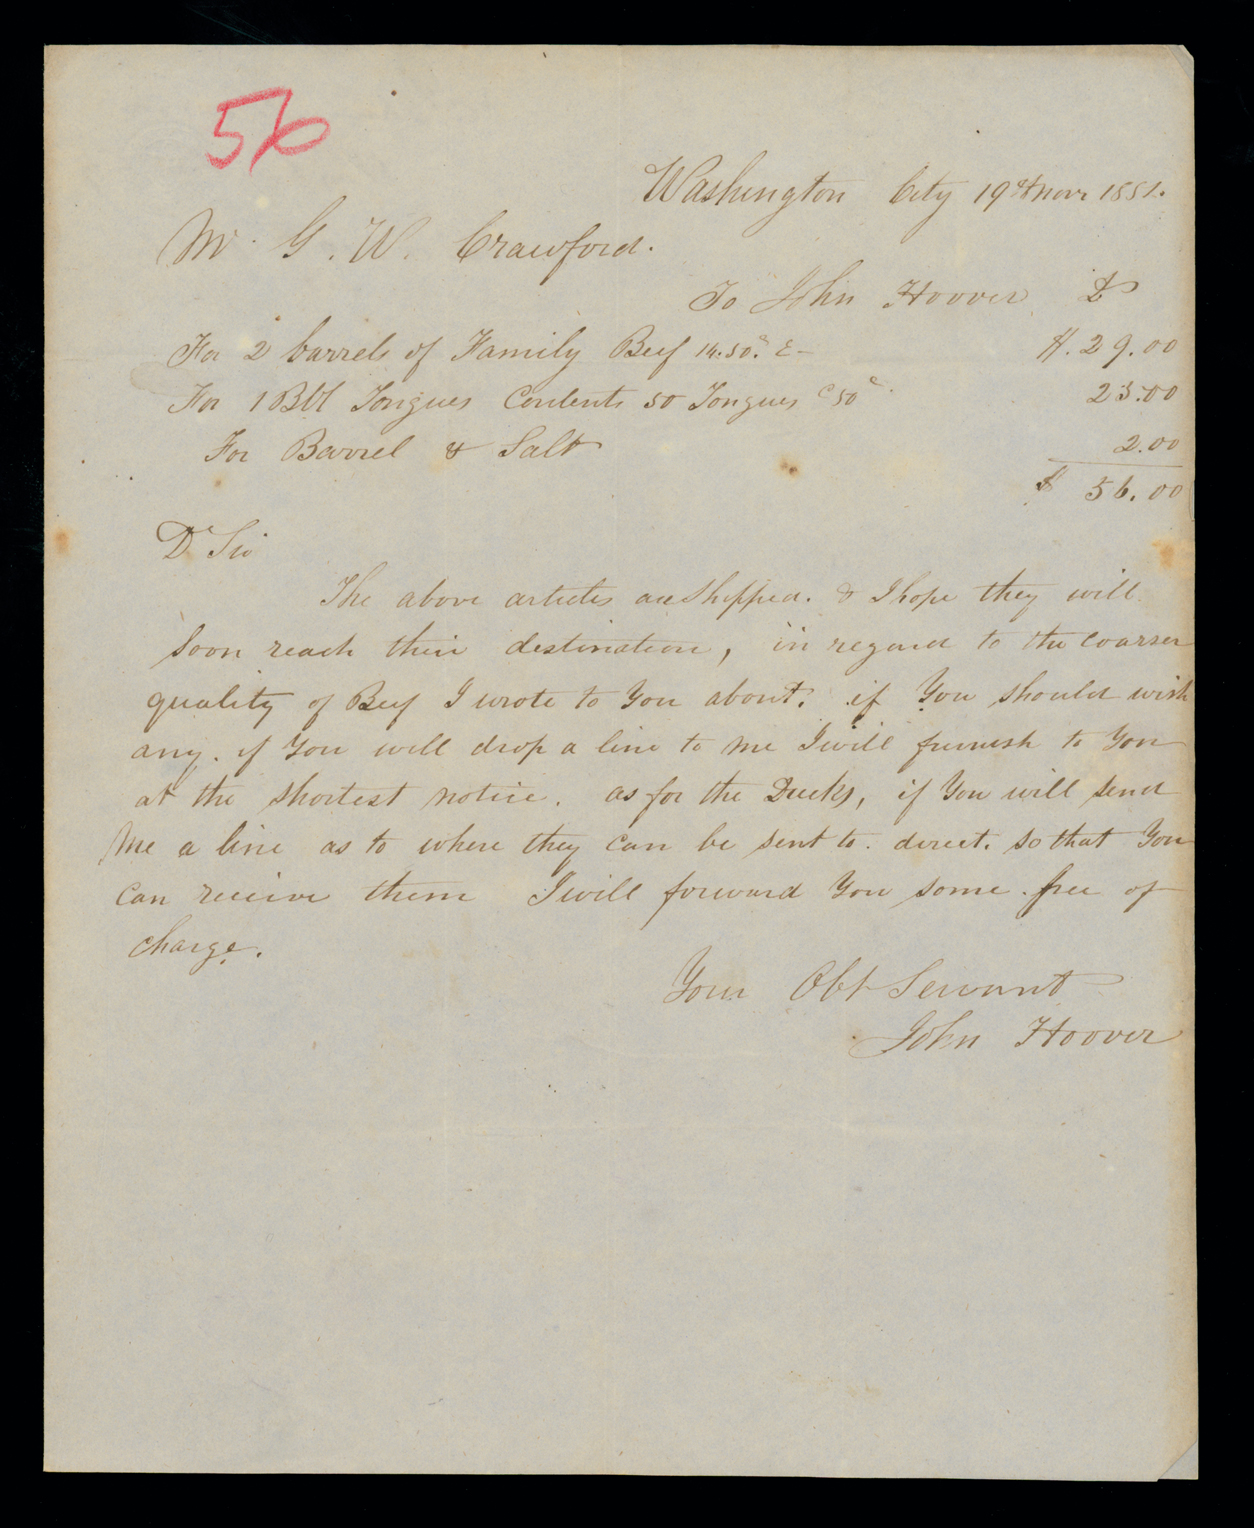 56
Washington City 19th Novr 1851.
Mr. G. W. Crawford.
To John Hoover Dr
For 2 barrels of Family Beef 14.50.c
$.29.00
For 1 Bbl Tongues Contents 50 Tongues 50c
25.00
For Barrel & Salt
2.00
$ 56.00
Dr Sir
The above articles are Shipped. & I hope they will
soon reach their destination, in regard to the coarser
quality of Beef I wrote to You about. if You should wish
any. if You will drop a line to me I will furnish to You
at the shortest notice. as for the Ducks, if You will send
Me a line as to where they can be sent to. direct. so that You
can receive them I will forward You some. free of
charge.
Your Obt Servant
John Hoover